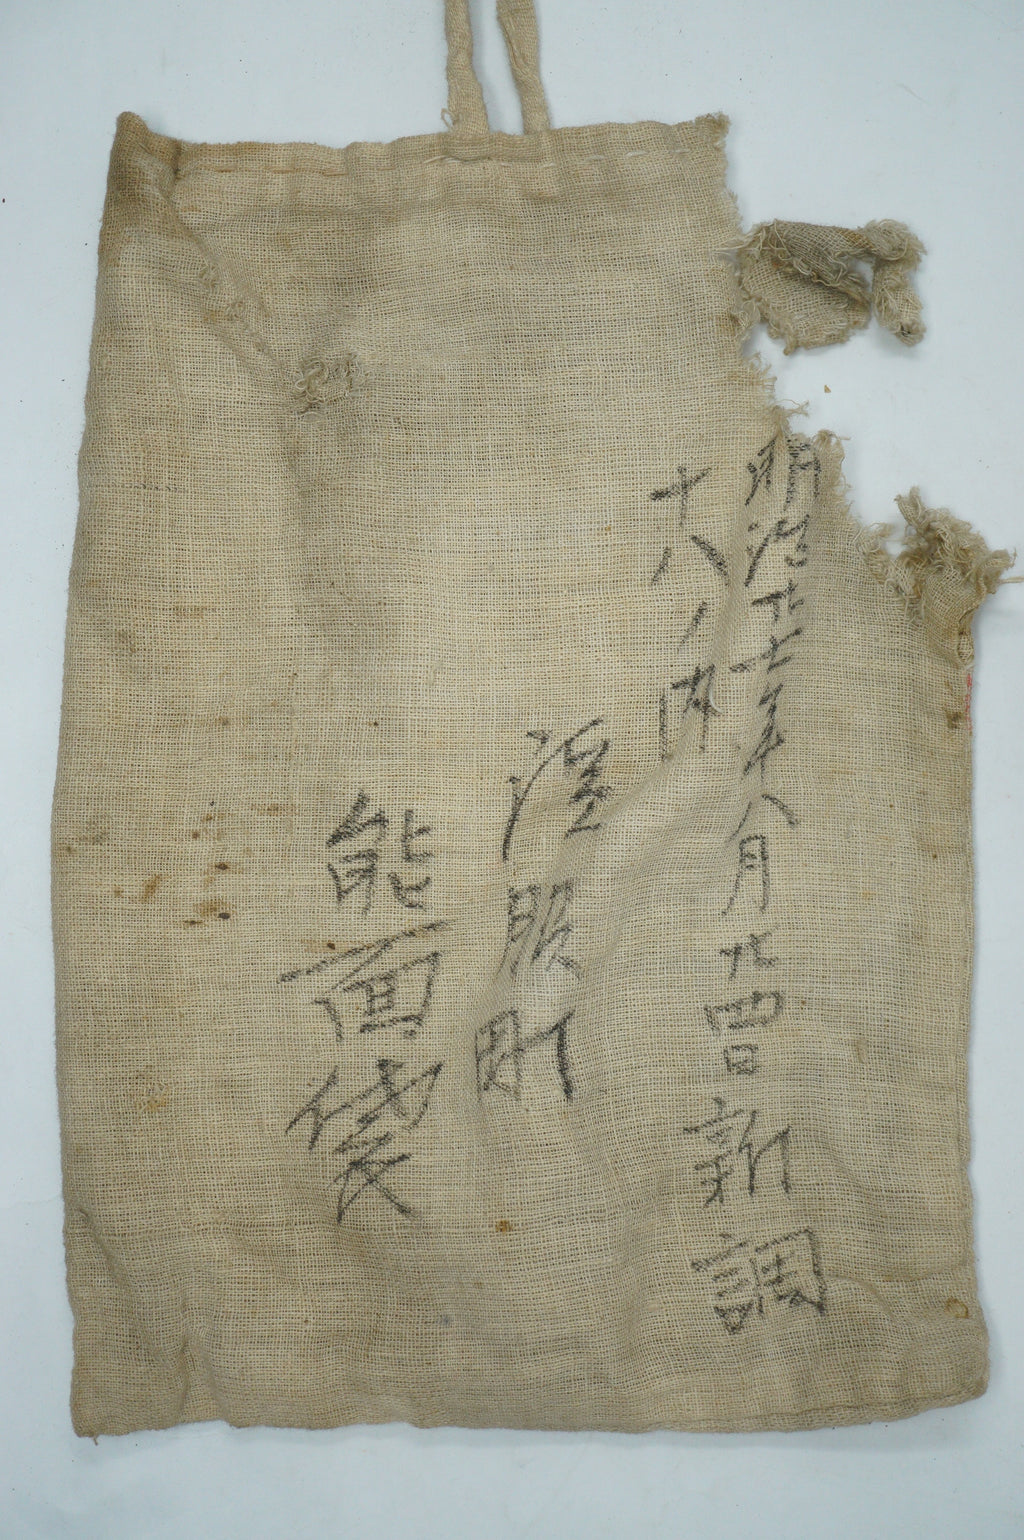 明治廿七年八月廿四日新調
十八ノ内
淫照町
能面袋